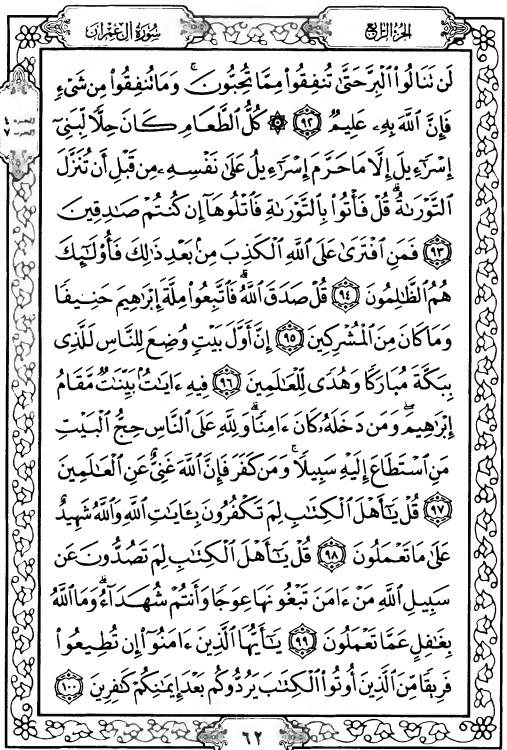 الجزء الرابع
سورة آل عمران
الجزء ٤
الحزب ٧
لَن تَنَالُوا۟ ٱلْبِرَّ حَتَّىٰ تُنفِقُوا۟ مِمَّا تُحِبُّونَ ۚ وَمَا تُنفِقُوا۟ مِن شَىْءٍ
فَإِنَّ ٱللَّهَ بِهِۦ عَلِيمٌ ٩٢ ۞ كُلُّ ٱلطَّعَامِ كَانَ حِلًّا لِّبَنِىٓ
إِسْرَٰٓءِيلَ إِلَّا مَا حَرَّمَ إِسْرَٰٓءِيلُ عَلَىٰ نَفْسِهِۦ مِن قَبْلِ أَن تُنَزَّلَ
ٱلتَّوْرَىٰةُ ۗ قُلْ فَأْتُوا۟ بِٱلتَّوْرَىٰةِ فَٱتْلُوهَآ إِن كُنتُمْ صَٰدِقِينَ
٩٣ فَمَنِ ٱفْتَرَىٰ عَلَى ٱللَّهِ ٱلْكَذِبَ مِنۢ بَعْدِ ذَٰلِكَ فَأُو۟لَٰٓئِكَ
هُمُ ٱلظَّٰلِمُونَ ٩٤ قُلْ صَدَقَ ٱللَّهُ ۗ فَٱتَّبِعُوا۟ مِلَّةَ إِبْرَٰهِيمَ حَنِيفًا
وَمَا كَانَ مِنَ ٱلْمُشْرِكِينَ ٩٥ إِنَّ أَوَّلَ بَيْتٍ وُضِعَ لِلنَّاسِ لَلَّذِى
بِبَكَّةَ مُبَارَكًا وَهُدًى لِّلْعَٰلَمِينَ ٩٦ فِيهِ ءَايَٰتٌۢ بَيِّنَٰتٌ مَّقَامُ
إِبْرَٰهِيمَ ۖ وَمَن دَخَلَهُۥ كَانَ ءَامِنًا ۗ وَلِلَّهِ عَلَى ٱلنَّاسِ حِجُّ ٱلْبَيْتِ
مَنِ ٱسْتَطَاعَ إِلَيْهِ سَبِيلًا ۚ وَمَن كَفَرَ فَإِنَّ ٱللَّهَ غَنِىٌّ عَنِ ٱلْعَٰلَمِينَ
٩٧ قُلْ يَٰٓأَهْلَ ٱلْكِتَٰبِ لِمَ تَكْفُرُونَ بِـَٔايَٰتِ ٱللَّهِ وَٱللَّهُ شَهِيدٌ
عَلَىٰ مَا تَعْمَلُونَ ٩٨ قُلْ يَٰٓأَهْلَ ٱلْكِتَٰبِ لِمَ تَصُدُّونَ عَن
سَبِيلِ ٱللَّهِ مَنْ ءَامَنَ تَبْغُونَهَا عِوَجًا وَأَنتُمْ شُهَدَآءُ ۗ وَمَا ٱللَّهُ
بِغَٰفِلٍ عَمَّا تَعْمَلُونَ ٩٩ يَٰٓأَيُّهَا ٱلَّذِينَ ءَامَنُوٓا۟ إِن تُطِيعُوا۟
فَرِيقًا مِّنَ ٱلَّذِينَ أُوتُوا۟ ٱلْكِتَٰبَ يَرُدُّوكُم بَعْدَ إِيمَٰنِكُمْ كَٰفِرِينَ ١٠٠
٦٢